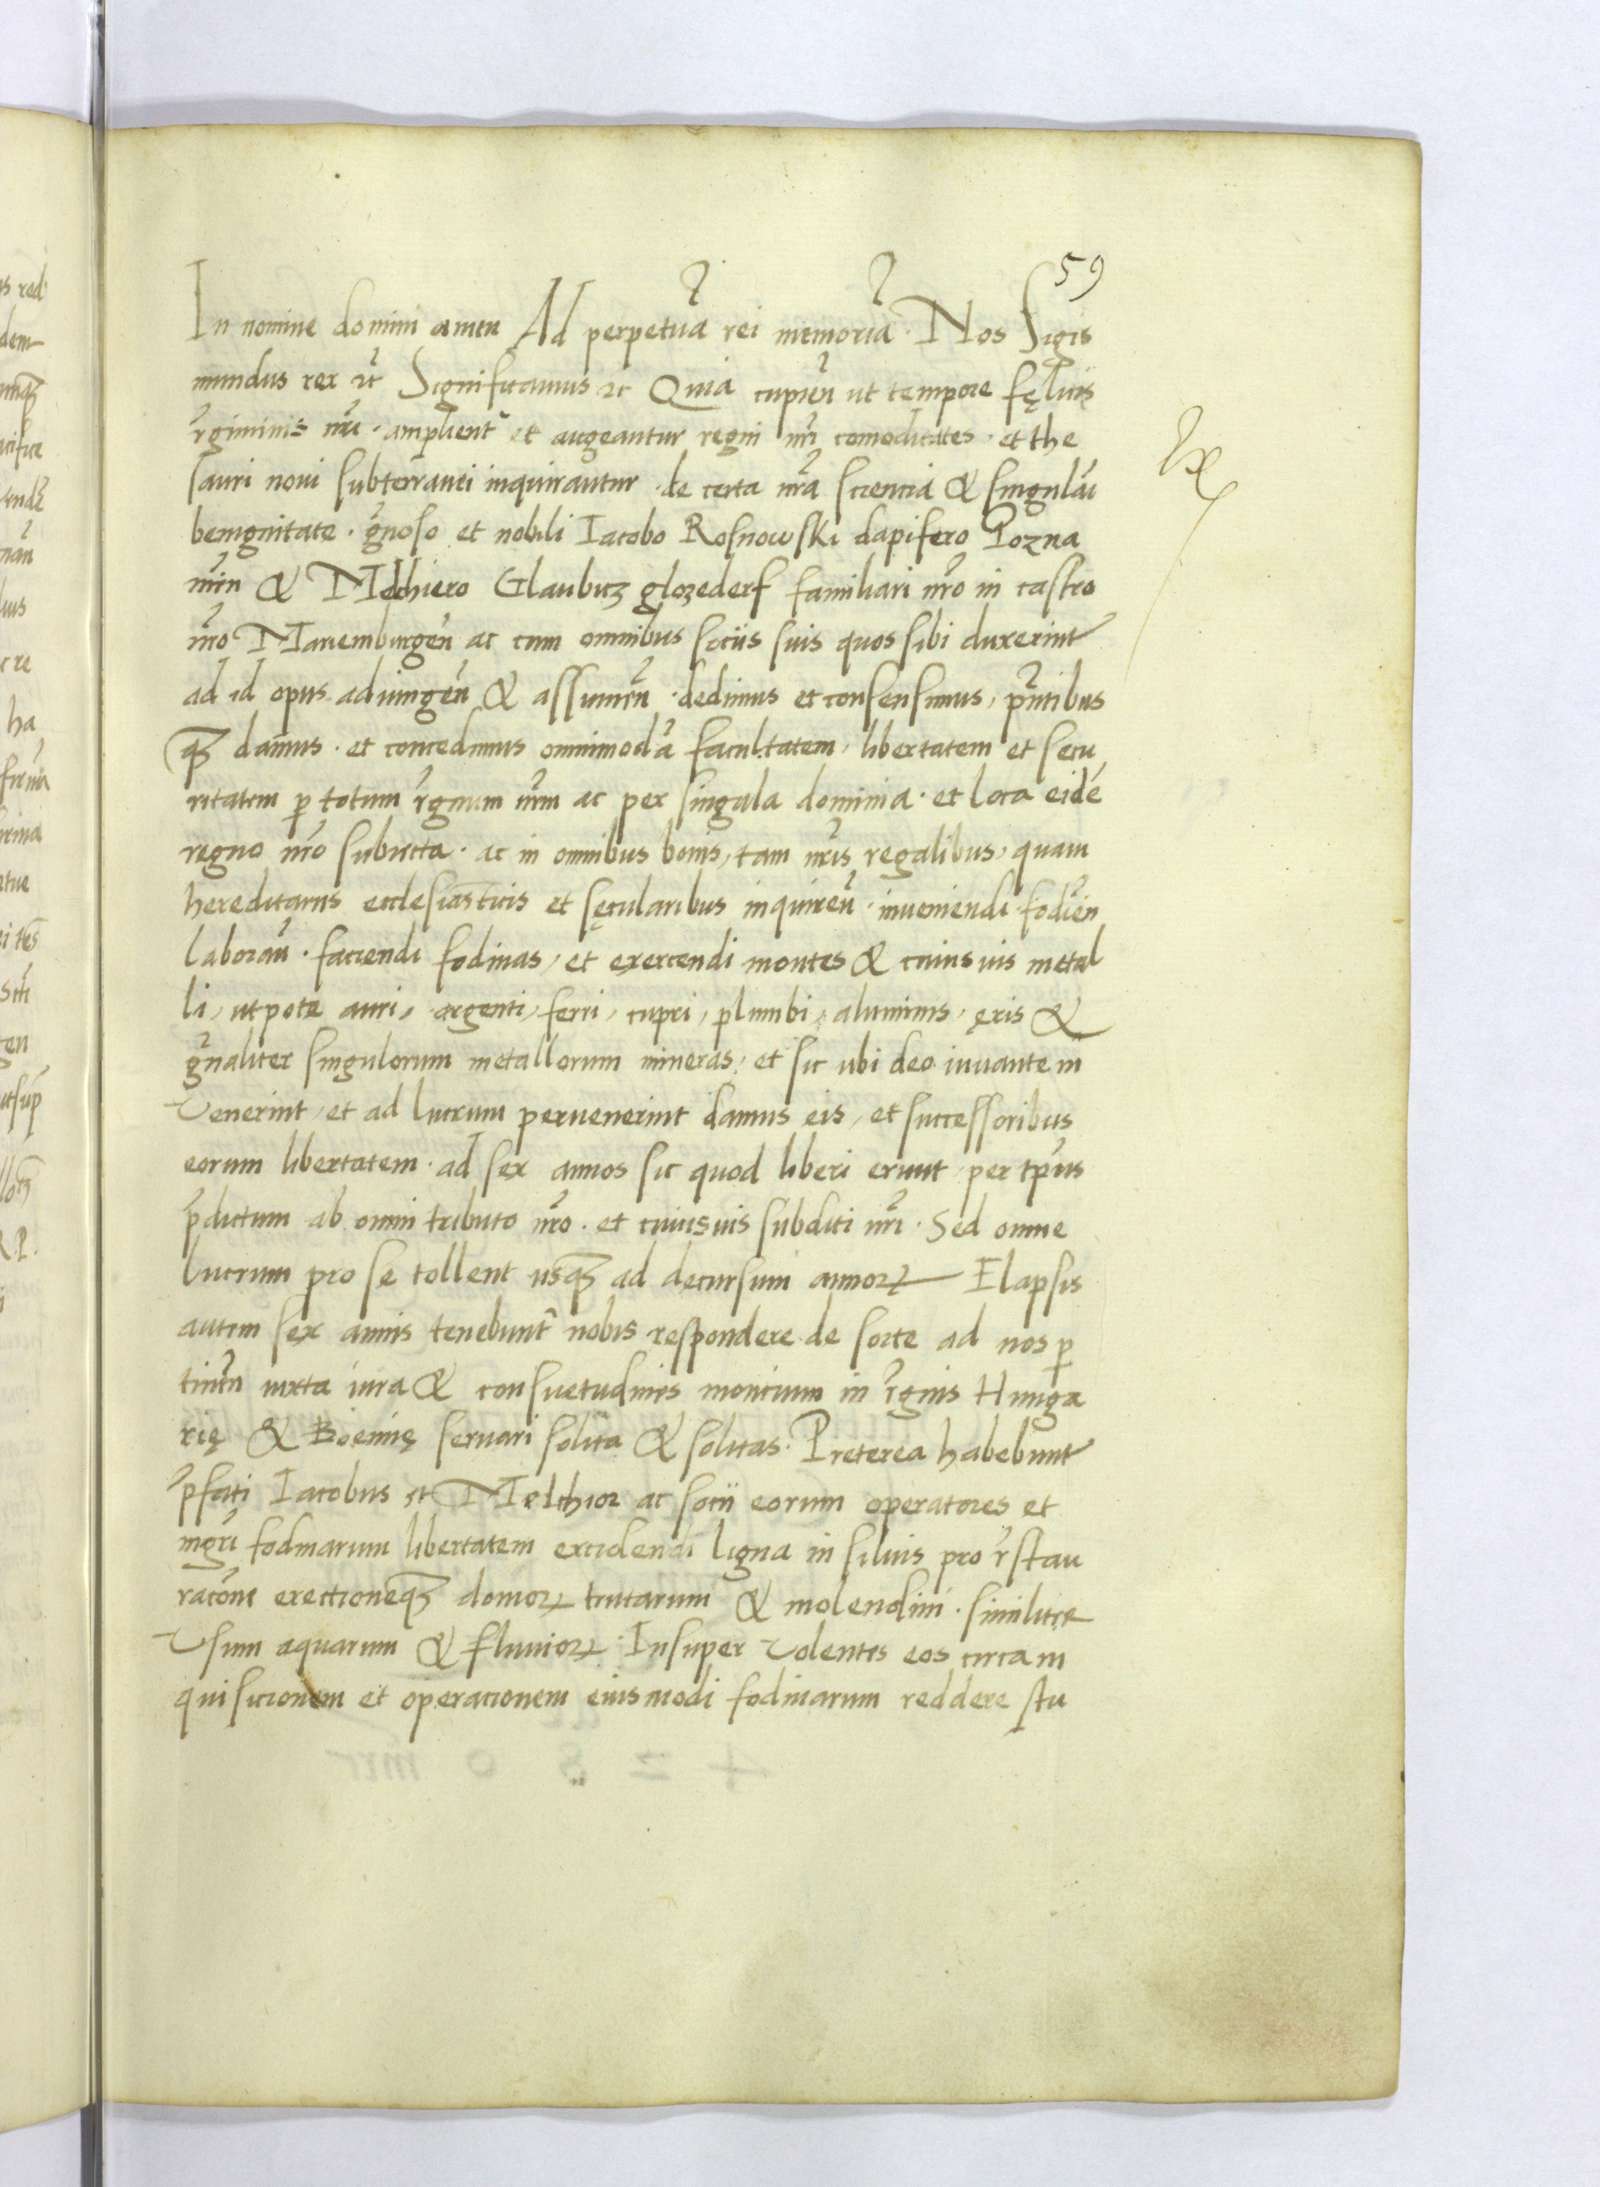 59
In nomine domini amen Ad perpetuã rei memoriã · Nos Sigis
mundus rex ꝛc̃ Significamus ꝛc Quia cupien̄ ut tempore fęlicis
r̃giminis nr̄i · amplient̃ et augeantur regni nr̄i comoditates · et the
sauri noui subterranei inquirantur · de certa nr̄a sciencia & singulãi
benignitate · g̃noso et nobili Iacobo Rosnowski dapifero Pozna
nien̄ & Melchiero Glaubicz glozederf familiari nr̄o in castro
nr̄o Mariemburgen̄ ac cum omnibus sociis suis quos sibi duxerint
ad id opus adiungen̄ & assumen̄ · dedimus et consensimus, pñtibus
qꝫ damus · et concedimus omnimodã facultatem, libertatem et secu
ritatem ꝑ totum r̃gnum nr̄m ac per singula dominia · et loca eidẽ
regno nr̄o subiecta · ac in omnibus bonis, tam nr̄is regalibus, quam
hereditariis ecclesiasticis et sęcularibus inquiren̄ · inueniendi · fodien̄
laboran̄ · faciendi fodinas, et exercendi montes & cuiusuis metal
li, utpote auri, argenti, ferri, cupri, plumbi, aluminis, ęris &
gñaliter singulorum metallorum mineras, et sic ubi deo iuuante in
uenerint, et ad lucrum peruenerint damus eis, et successoribus
eorum libertatem · ad sex annos sic quod liberi erunt per tp̃us
p̃dictum ab omni tributo nr̄o · et cuiusuis subditi nr̄i · Sed omne
lucrum pro se tollent usqꝫ ad decursum annoꝝ Elapsis
autem sex annis tenebunt̃ nobis respondere de sorte ad nos ꝑ
tinen̄ iuxta iura & consuetudines moncium in r̃gnis Hunga
rię & Boemię seruari solita & solitas · Preterea habebunt
p̃fati Iacobus et Melchior ac socii eorum operatores et
mgr̄i fodinarum libertatem excidendi ligna in siluis pro r̃stau
racõne erectioneqꝫ domoꝝ trutarum & molendini · similiter
Usum aquarum & fluuioꝝ · Insuper Volentes eos circa in
quisicionem et operacionem eiusmodi fodinarum reddere stu